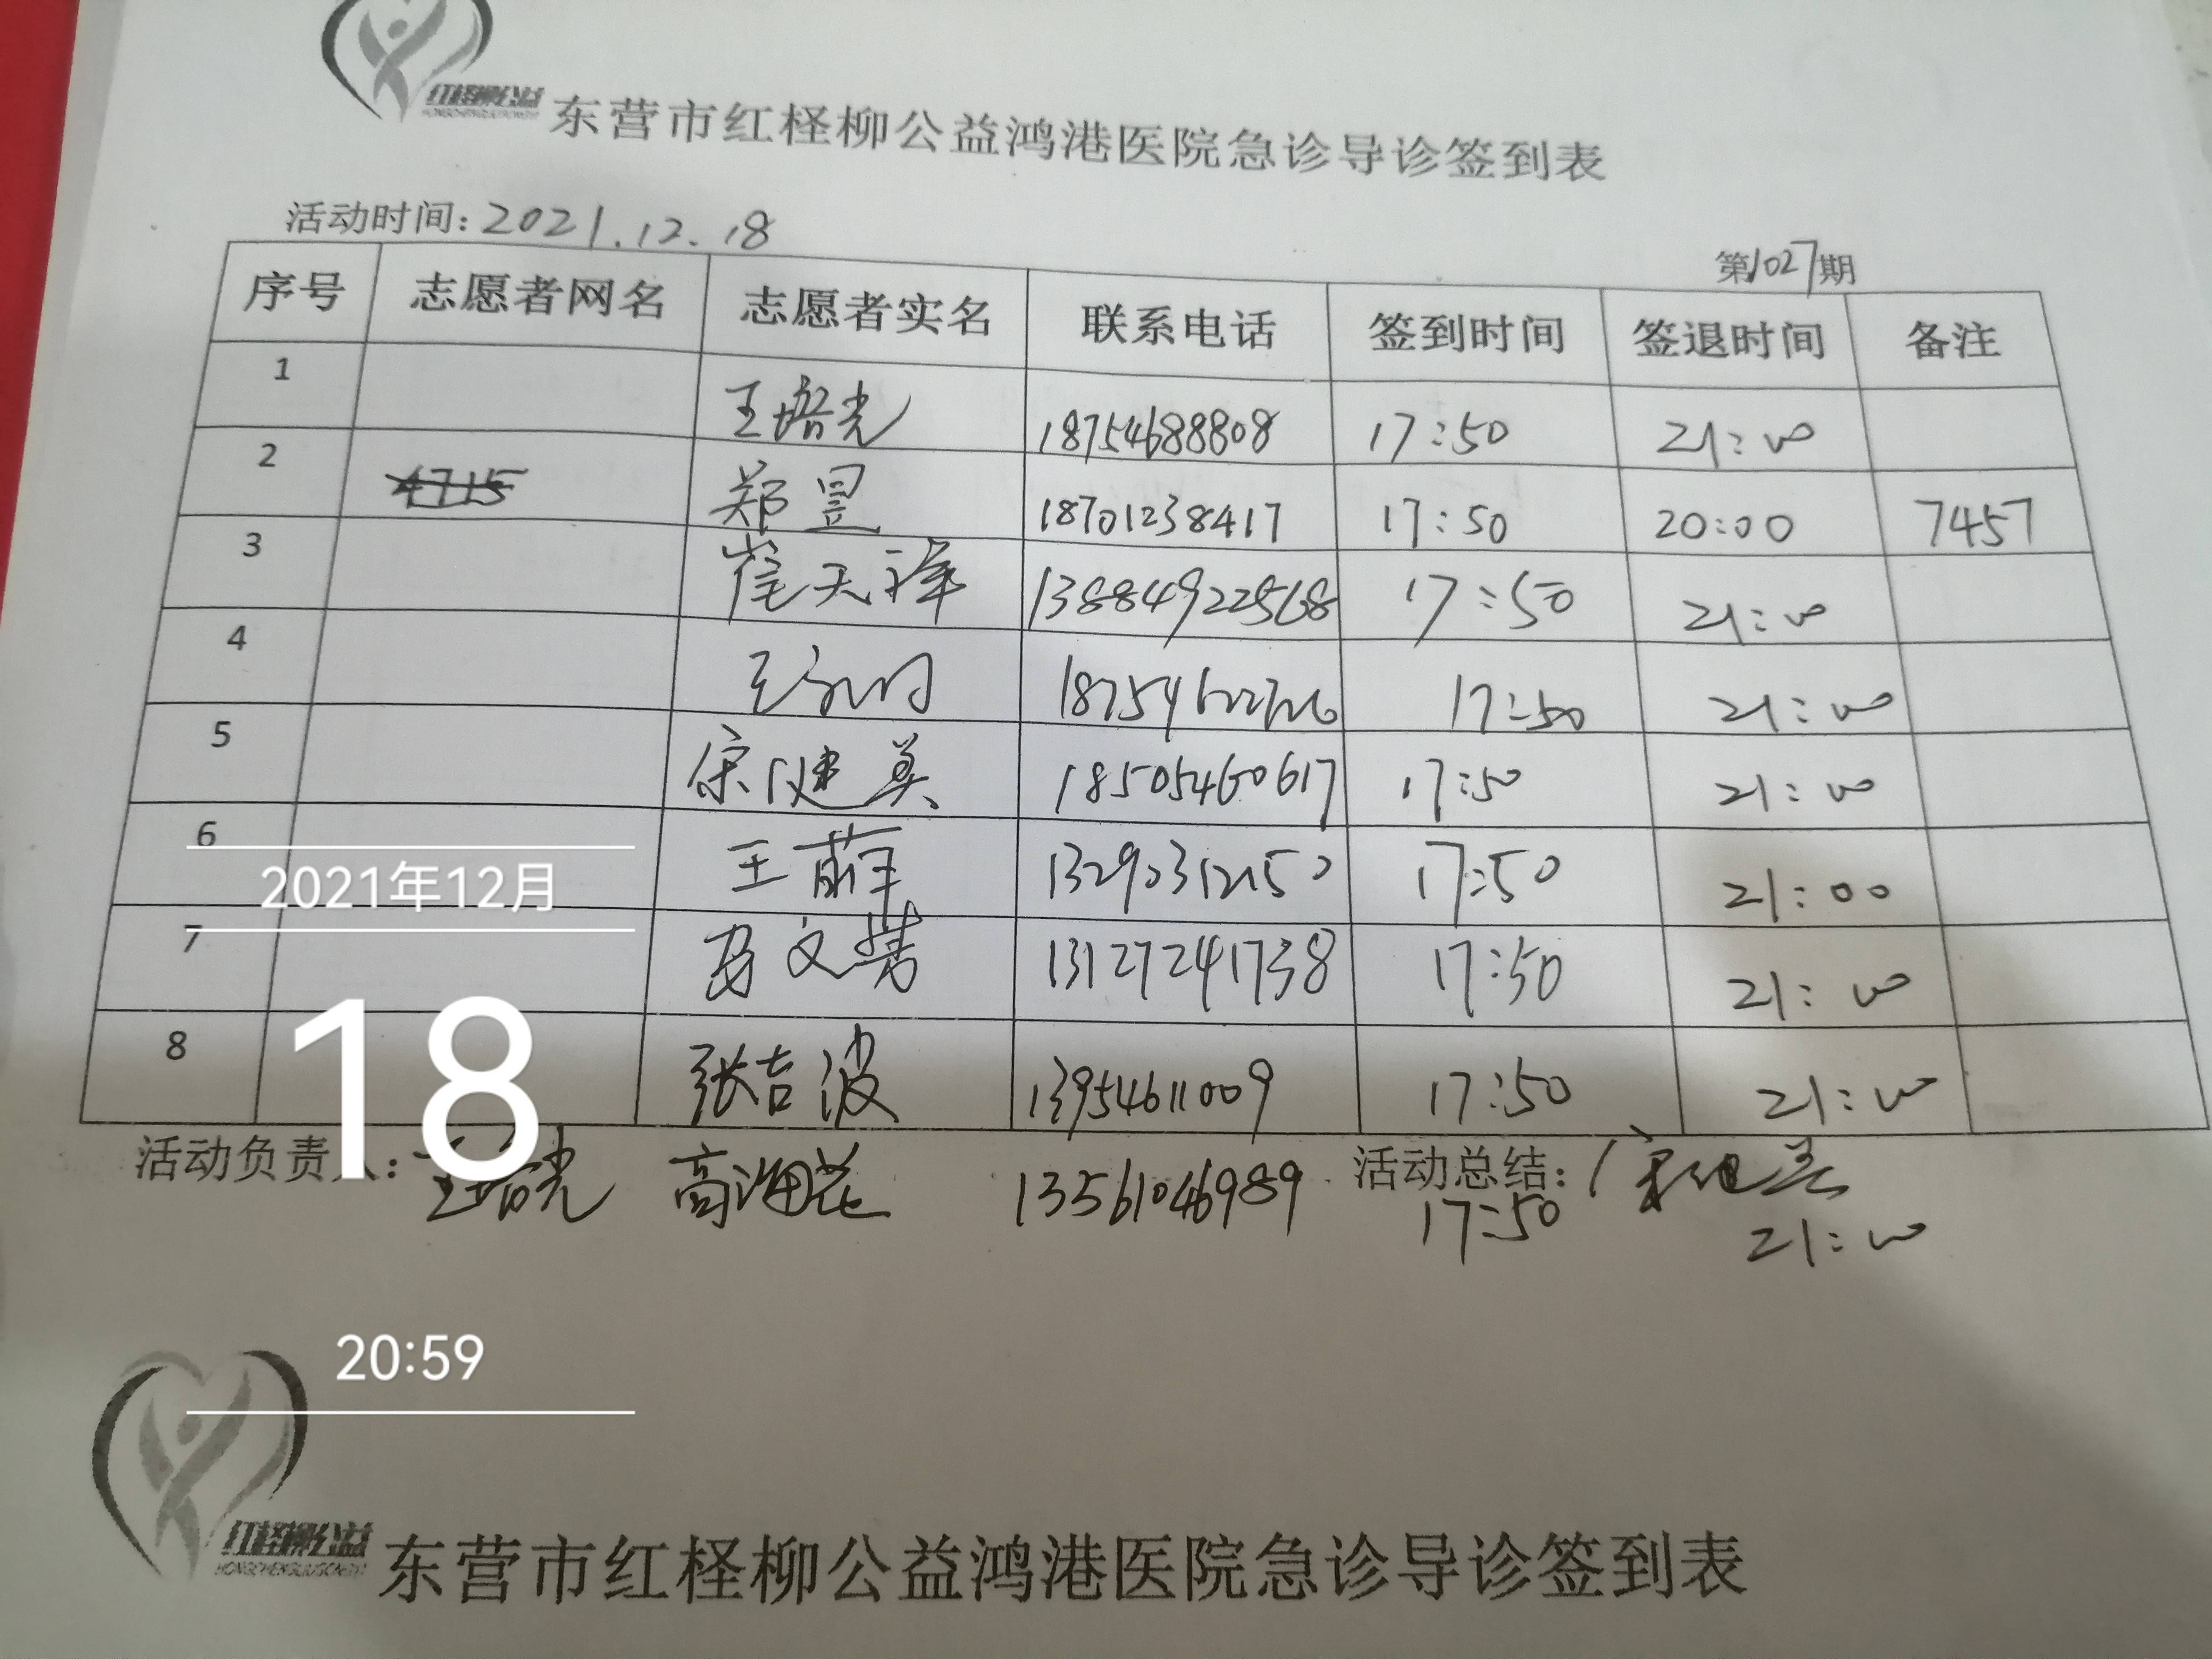 红柽柳公益
东营市红柽柳公益鸿港医院急诊导诊签到表
活动时间: 2021.12.18
第1027期
序号 志愿者网名 志愿者实名 联系电话 签到时间 签退时间 备注
1 王培光 18754688808 17:50 21:00
2 4715 郑昱 18701238417 17:50 20:00 7457
3 崔天祥 13884922568 17:50 21:00
4 17:50 21:00
5 宋健英 18505460617 17:50 21:00
6 王萌 13290312150 17:50 21:00
7 文 13127241738 17:50 21:00
8 张吉波 13954611009 17:50 21:00
活动负责人: 王培光 高海花 13561046989 活动总结:
17:50 21:00
2021年12月
18
20:59
红柽柳公益
东营市红柽柳公益鸿港医院急诊导诊签到表